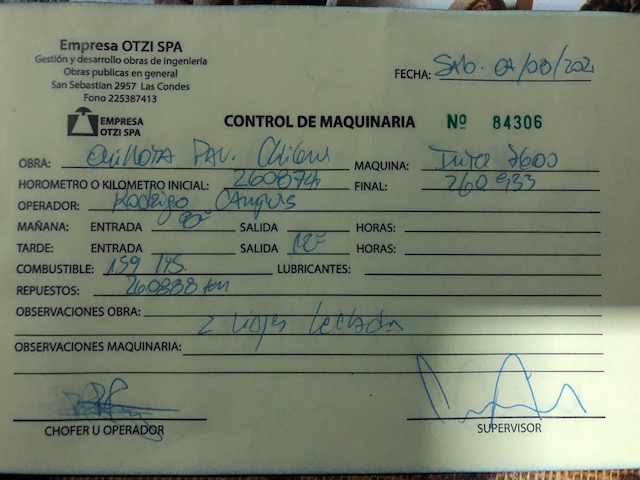 Empresa OTZI SPA
Gestión y desarrollo obras de Ingeniería
Obras publicas en general
San Sebastian 2957 Las Condes
Fono 225387413
FECHA: Sab. 07/08/2021
EMPRESA
OTZI SPA
CONTROL DE MAQUINARIA Nº 84306
OBRA: Quillota Pav. MAQUINA:
HOROMETRO O KILOMETRO INICIAL: 260874 FINAL: 260933
OPERADOR: Rodrigo Campos
MAÑANA: ENTRADA 8º SALIDA HORAS:
TARDE: ENTRADA SALIDA 18º HORAS:
COMBUSTIBLE: 159 lts LUBRICANTES:
REPUESTOS: 260898 km
OBSERVACIONES OBRA:
2 viajes lechada
OBSERVACIONES MAQUINARIA:
CHOFER U OPERADOR
SUPERVISOR